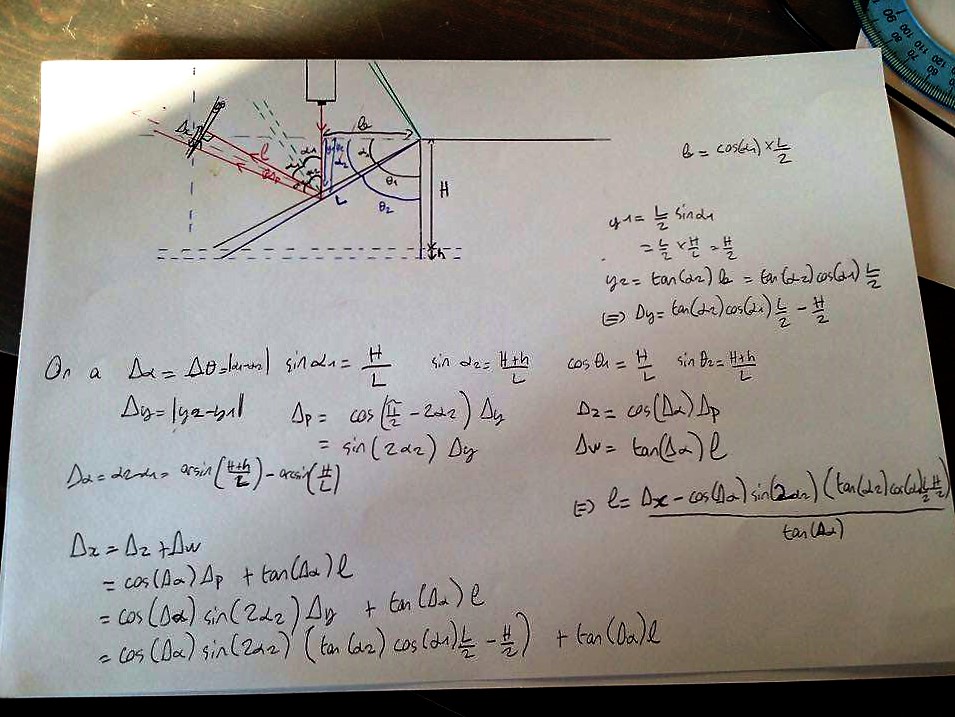 b = cos(α1) × L/2
y1 = L/2 sin α1
= L/2 × H/L = H/2
y2 = tan(α2) b = tan(α2) cos(α1) L/2
⇔ Δy = tan(α2) cos(α1) L/2 - H/2
On a Δα = Δθ = |α1-α2| sin α1 = H/L sin α2 = H+h/L cos θ1 = H/L sin θ2 = H+h/L
Δy = |y2-y1| Δp = cos(π/2 - 2α2) Δy Δz = cos(Δα) Δp
= sin(2α2) Δy Δw = tan(Δα) l
Δα = α2-α1 = arcsin(H+h/L) - arcsin(H/L)
⇔ l = Δx - cos(Δα) sin(2α2) (tan(α2) cos(α1) L/2 - H/2) / tan(Δα)
Δx = Δz + Δw
= cos(Δα) Δp + tan(Δα) l
= cos(Δα) sin(2α2) Δy + tan(Δα) l
= cos(Δα) sin(2α2) (tan(α2) cos(α1) L/2 - H/2) + tan(Δα) l
b
Δx
l
α1
θ1
θ2
L
H
h